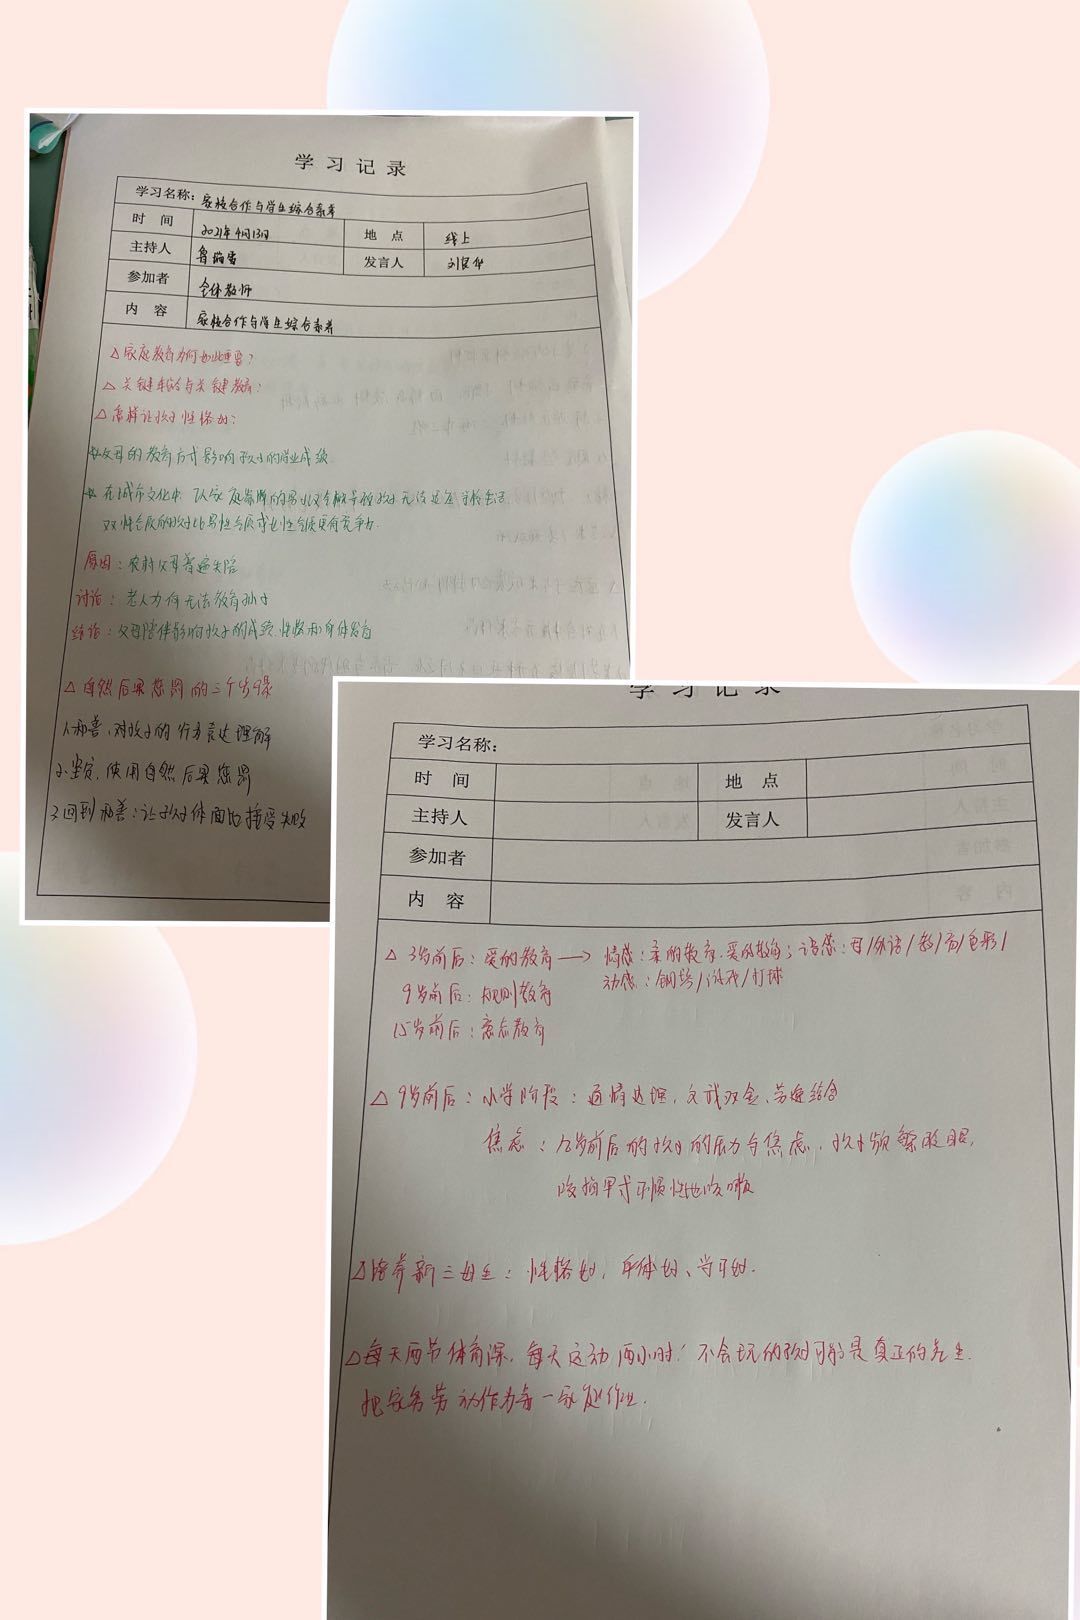 学习记录
学习名称: 家校合作与学生综合素养
时 间 2021年4月13日 地 点 线上
主持人 发言人 刘良华
参加者 全体教师
内 容 家校合作与学生综合素养
△家庭教育为何如此重要?
△关键年龄与关键教育:
△怎样让孩子性格好:
父母的教育方式影响孩子的学业成绩
在城市文化中
双性气质的孩子比男性气质或女性气质更有竞争力.
原因: 农村父母普遍失陪
讨论: 老人为何无法教育孙子
结论: 父母陪伴影响孩子的成绩.性格和身体发育
△自然后果惩罚的三个步骤
1.和善、对孩子的行为表达理解
2.坚定.使用自然后果惩罚
3.回到和善:让孩子体面地接受失败
学习记录
学习名称:
时 间 地 点
主持人 发言人
参加者
内 容
△3岁前后: 爱的教育 → 情感: 爱的教育; 语感:
动感: 钢琴/游戏/打球
9岁前后: 规则教育
15岁前后: 意志教育
△9岁前后: 小学阶段: 通情达理、文武双全、劳逸结合
焦虑: 12岁前后的孩子的压力与焦虑、孩子频繁眨眼,
咬指甲或习惯性地咳嗽
△培养新三好生: 性格好, 身体好、学习好.
△每天两节体育课,每天运动两小时! 不会玩的孩子可能是真正的差生.
把家务劳动作为第一家庭作业.